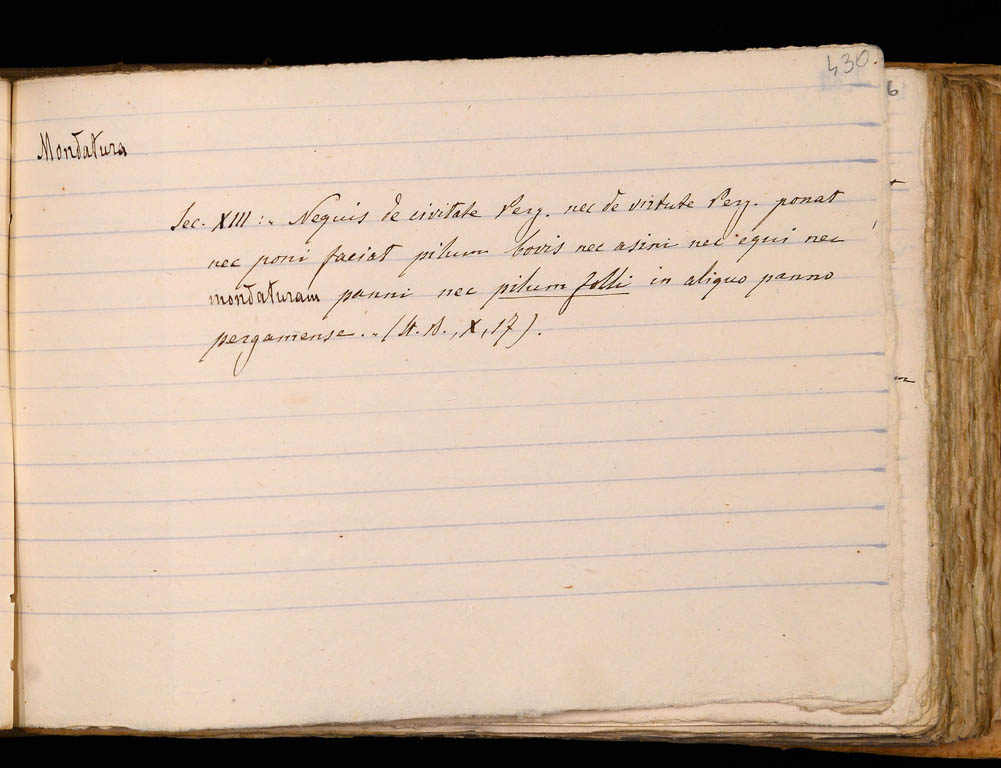 430.
6
Mondatura
Sec. XIII: „ Nequis de civitate Perg. nec de virtute Perg. ponat
nec poni faciat pilum bovis nec asini nec equi nec
mondaturam panni nec pilum folli in aliquo panno
pergamense. „ (St. A., X, 17).